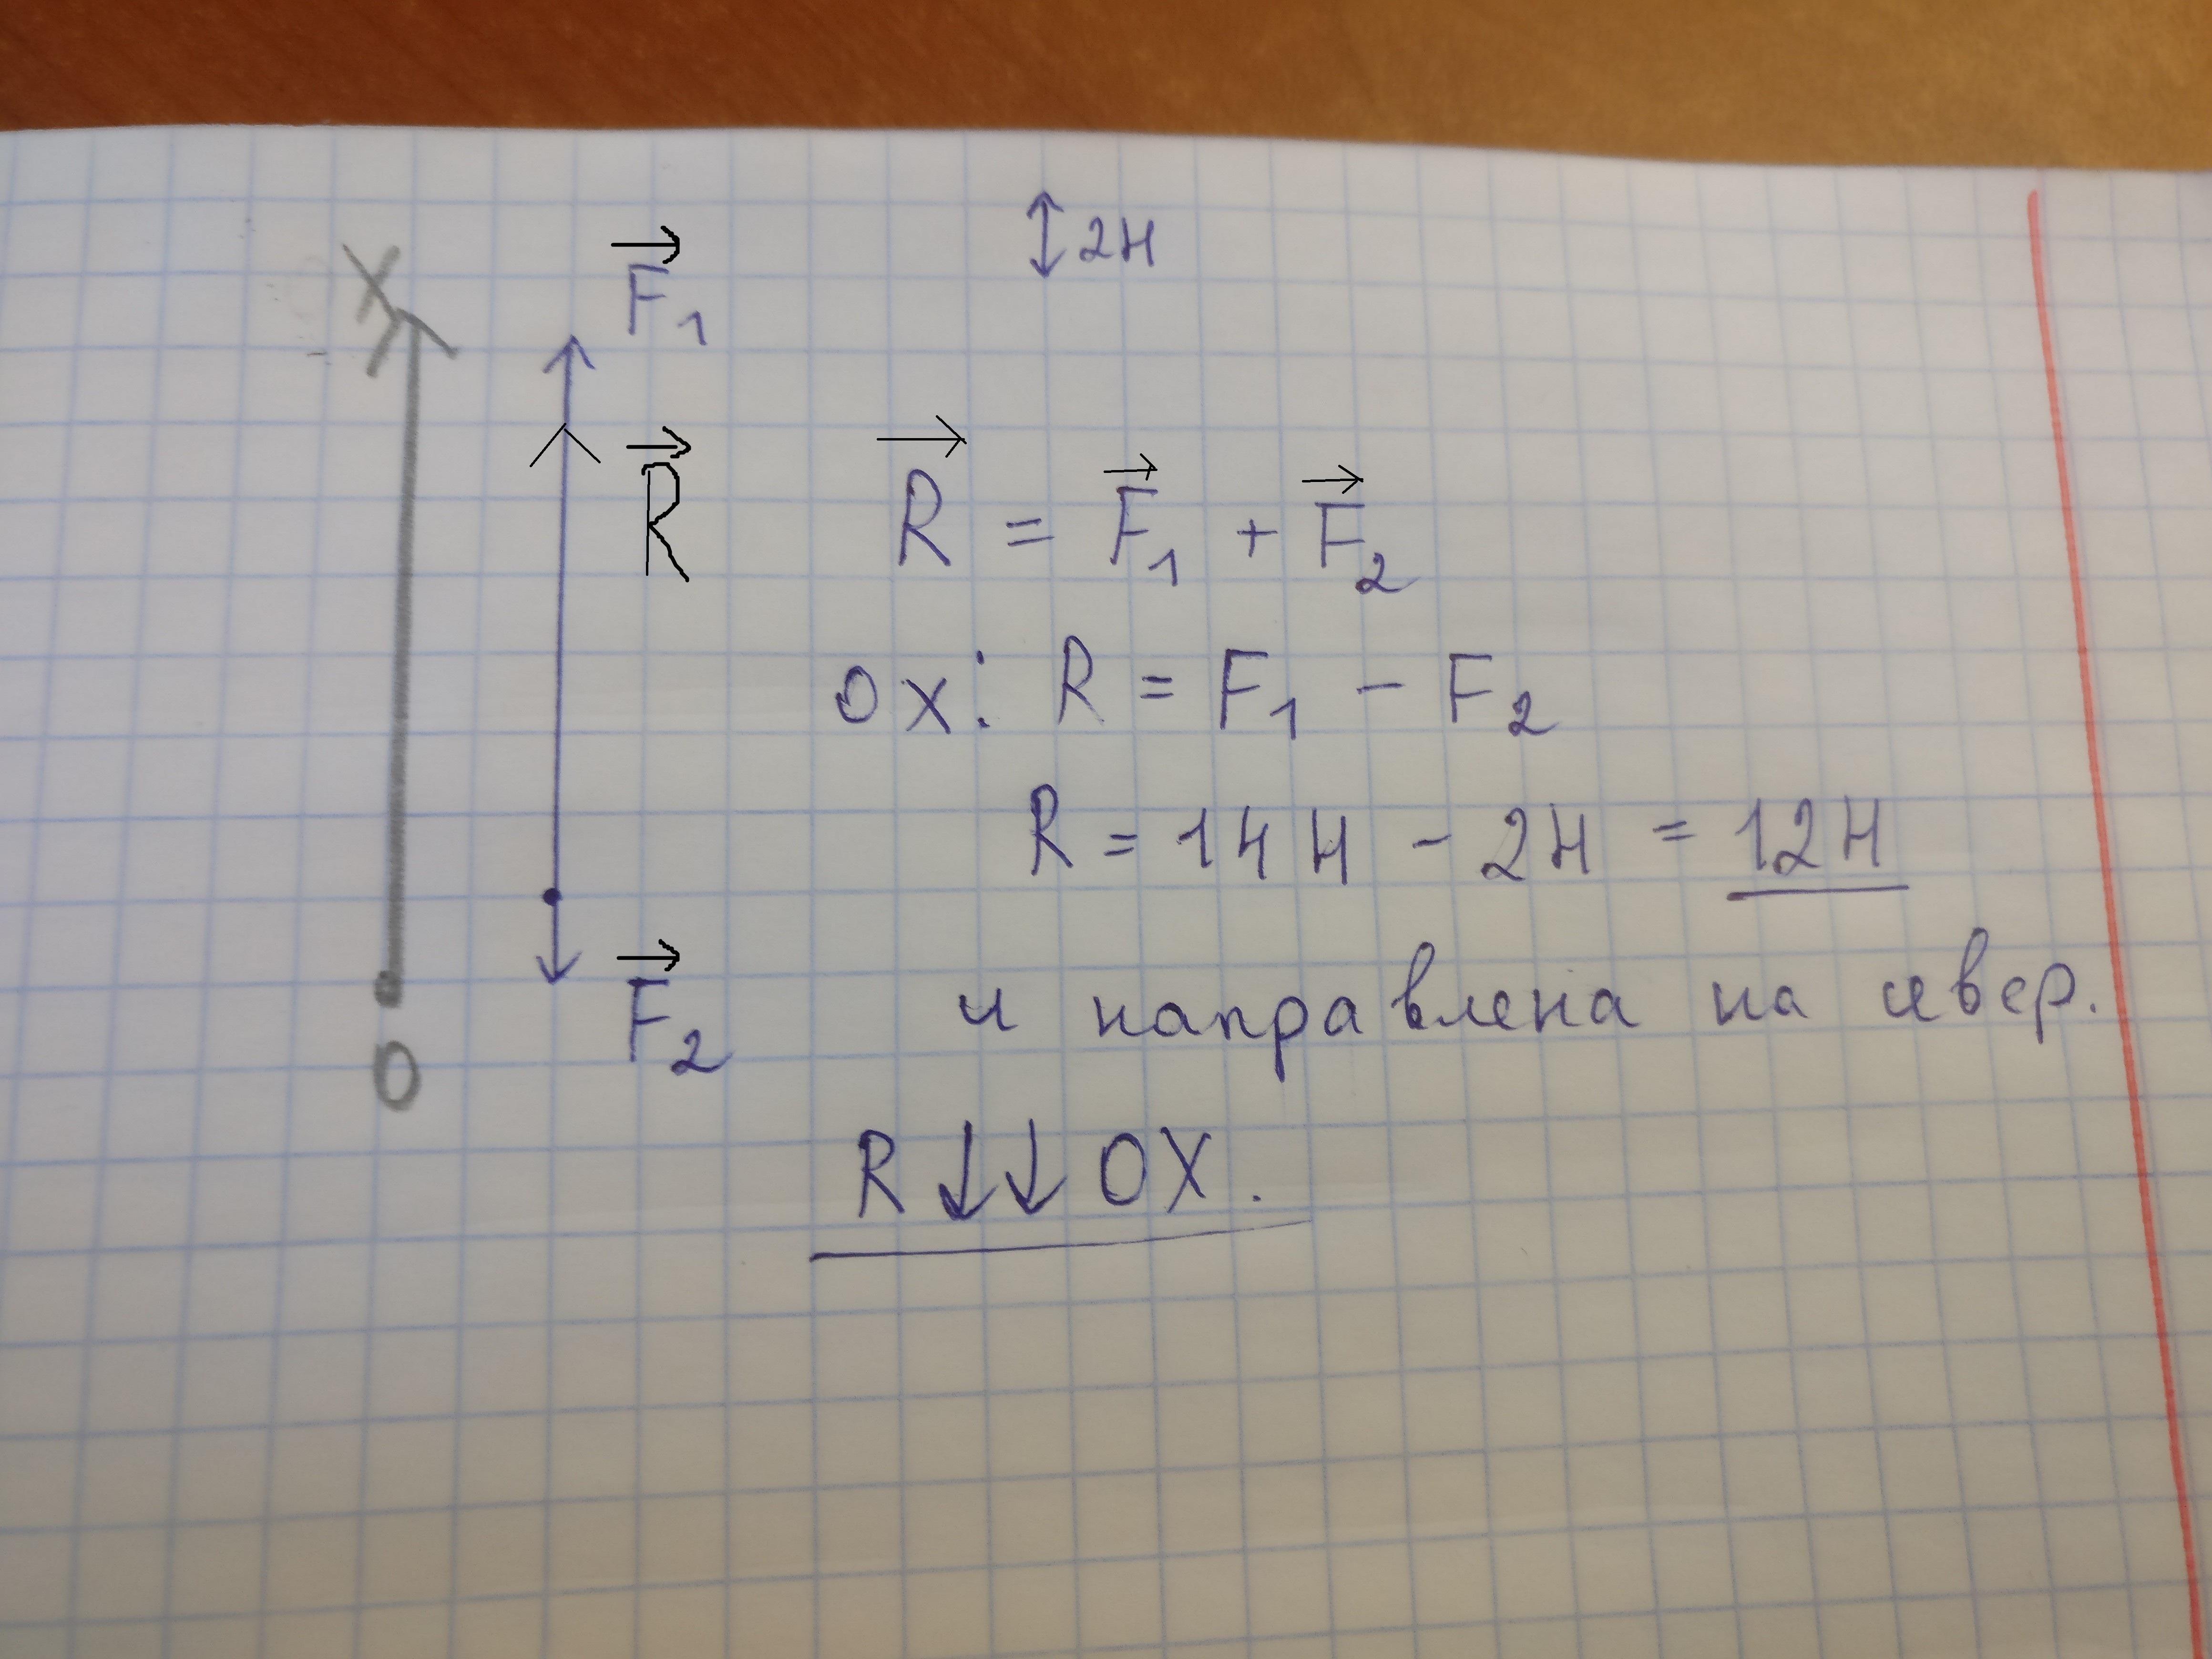 X
F₁
2Н
R
R = F₁ + F₂
ОХ: R = F₁ - F₂
R = 14Н - 2Н = 12Н
F₂
и направлена на север.
О
R ↓↓ ОХ.